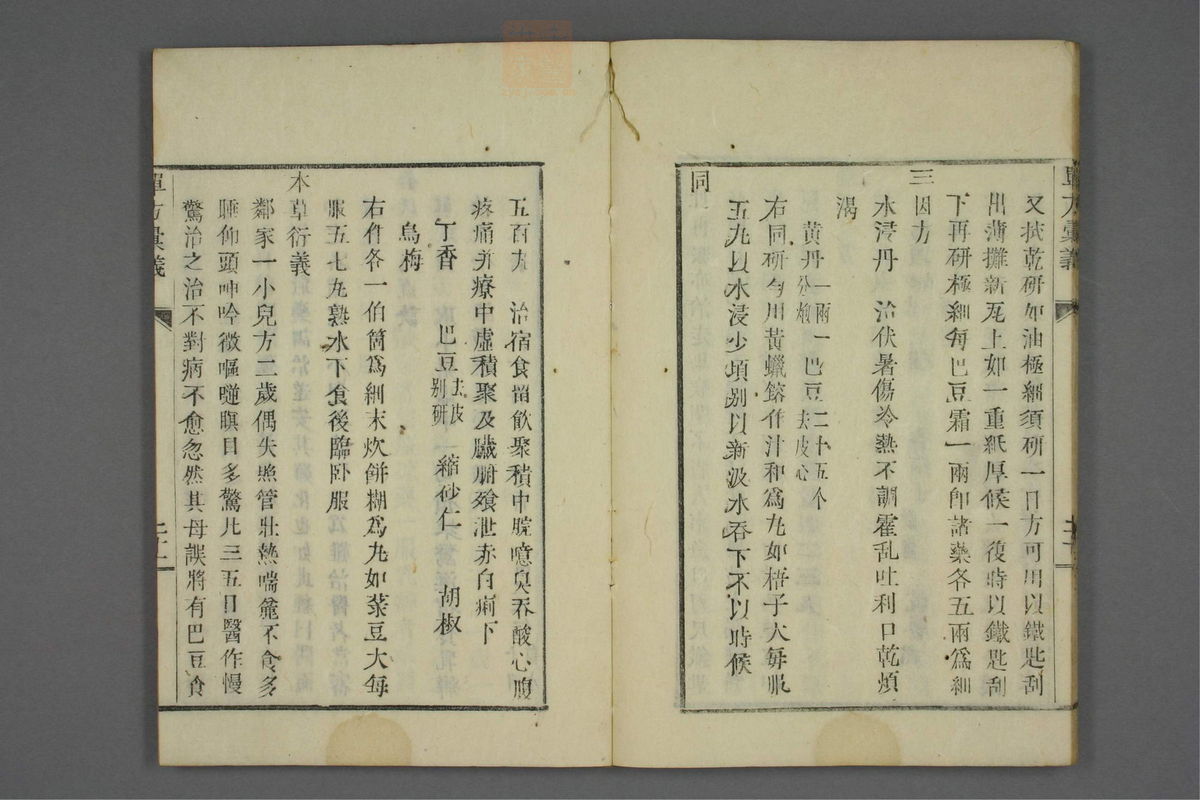 又拭乾研如油極細須研一日方可用以鐵匙刮
出薄攤新瓦上如一重紙厚候一復時以鐵匙刮
下再研極細每巴豆霜一兩卽諸藥各五兩爲細
三因方
水浸丹 治伏暑傷冷熱不調霍乱吐利口乾煩
渴
黄丹一兩一分 巴豆二十五个去皮心
右同研匀用黄蠟鎔作汁和爲丸如梧子大每服
五丸以水浸少頃别以新汲水吞下不以時候
同
單方彙義
五百丸 治宿食留飲聚積中脘噫臭吞酸心腹
疼痛并療中虛積聚及臟腑飱泄赤白痢下
丁香 巴豆去皮别研 縮砂仁 胡椒
烏梅
右件各一伯箇爲細末炊餅糊爲丸如菉豆大每
服五七丸熟水下食後臨卧服
本草衍義
鄰家一小兒方二歲偶失照管壯熱喘麄不食多
睡仰頭呻吟微嘔瞑目多驚凡三五日醫作慢
驚治之治不對病不愈忽然其母誤將有巴豆食
單方彙義